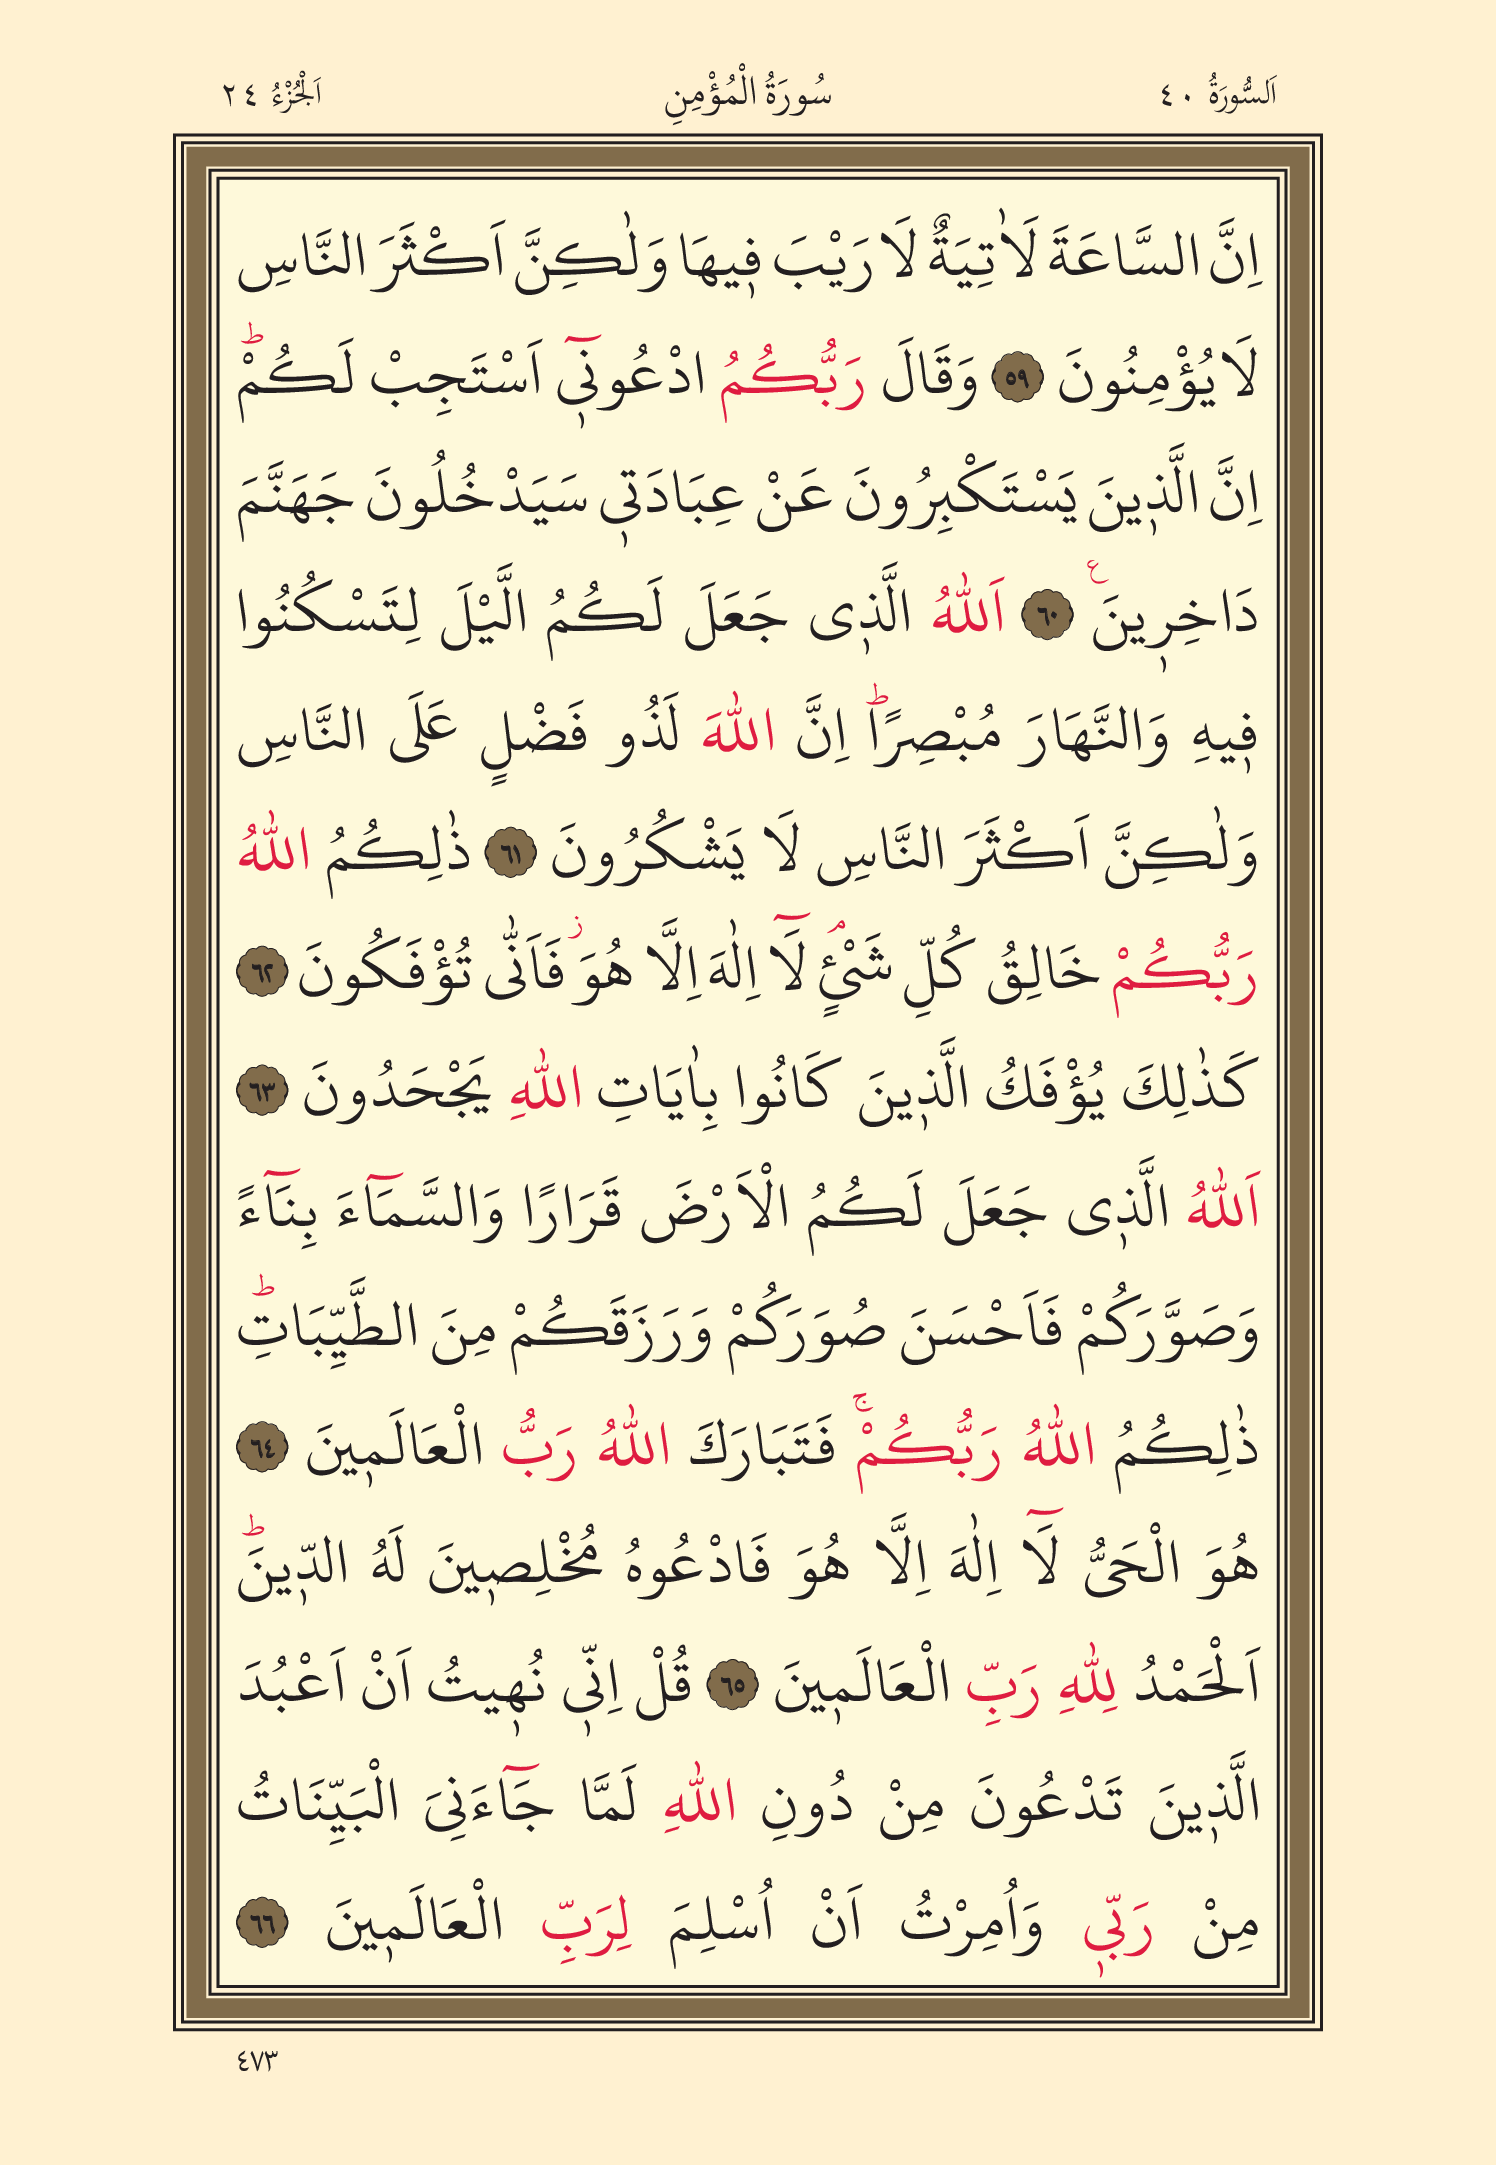 اَلسُّورَةُ ٤٠ سُورَةُ الْمُؤْمِنِ اَلْجُزْءُ ٢٤
اِنَّ السَّاعَةَ لَاٰتِيَةٌ لَا رَيْبَ ف۪يهَا وَلٰكِنَّ اَكْثَرَ النَّاسِ
لَا يُؤْمِنُونَ ﴿٥٩﴾ وَقَالَ رَبُّكُمُ ادْعُون۪ٓي اَسْتَجِبْ لَكُمْۜ
اِنَّ الَّذ۪ينَ يَسْتَكْبِرُونَ عَنْ عِبَادَت۪ي سَيَدْخُلُونَ جَهَنَّمَ
دَاخِر۪ينَ ع ﴿٦٠﴾ اَللّٰهُ الَّذ۪ى جَعَلَ لَكُمُ الَّيْلَ لِتَسْكُنُوا
ف۪يهِ وَالنَّهَارَ مُبْصِرًاۜ اِنَّ اللّٰهَ لَذُو فَضْلٍ عَلَى النَّاسِ
وَلٰكِنَّ اَكْثَرَ النَّاسِ لَا يَشْكُرُونَ ﴿٦١﴾ ذٰلِكُمُ اللّٰهُ
رَبُّكُمْ خَالِقُ كُلِّ شَيْءٍۢ لَٓا اِلٰهَ اِلَّا هُوَۘ فَاَنّٰى تُؤْفَكُونَ ﴿٦٢﴾
كَذٰلِكَ يُؤْفَكُ الَّذ۪ينَ كَانُوا بِاٰيَاتِ اللّٰهِ يَجْحَدُونَ ﴿٦٣﴾
اَللّٰهُ الَّذ۪ى جَعَلَ لَكُمُ الْاَرْضَ قَرَارًا وَالسَّمَٓاءَ بِنَٓاءً
وَصَوَّرَكُمْ فَاَحْسَنَ صُوَرَكُمْ وَرَزَقَكُمْ مِنَ الطَّيِّبَاتِۜ
ذٰلِكُمُ اللّٰهُ رَبُّكُمْۚ فَتَبَارَكَ اللّٰهُ رَبُّ الْعَالَم۪ينَ ﴿٦٤﴾
هُوَ الْحَيُّ لَٓا اِلٰهَ اِلَّا هُوَ فَادْعُوهُ مُخْلِص۪ينَ لَهُ الدّ۪ينَۜ
اَلْحَمْدُ لِلّٰهِ رَبِّ الْعَالَم۪ينَ ﴿٦٥﴾ قُلْ اِنّ۪ي نُه۪يتُ اَنْ اَعْبُدَ
الَّذ۪ينَ تَدْعُونَ مِنْ دُونِ اللّٰهِ لَمَّا جَٓاءَنِيَ الْبَيِّنَاتُ
مِنْ رَبّ۪ي وَاُمِرْتُ اَنْ اُسْلِمَ لِرَبِّ الْعَالَم۪ينَ ﴿٦٦﴾
٤٧٣